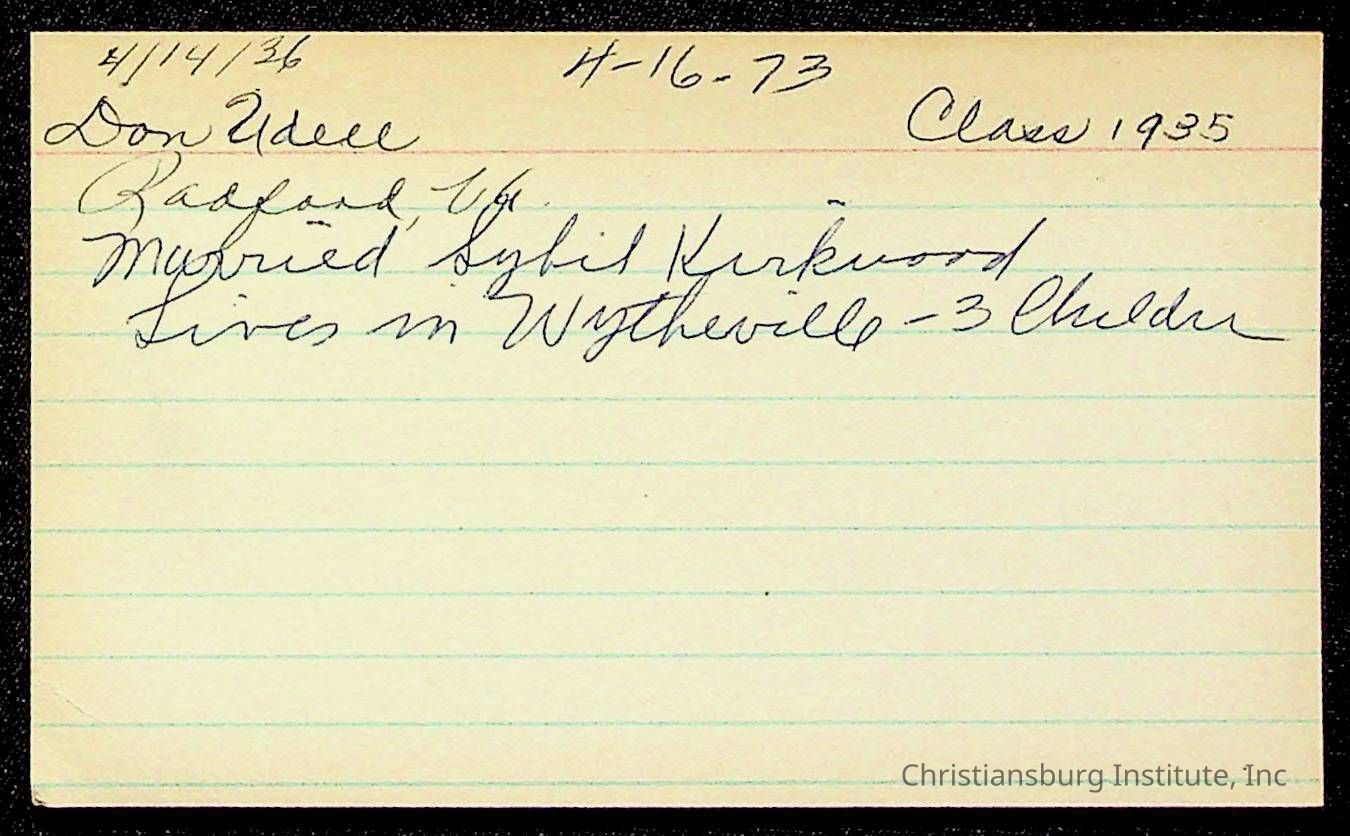 4/14/36 4-16-73
Don Udell Class 1935
Radford, Va.
Married Sybil Kirkwood
Lives in Wytheville - 3 Children
Christiansburg Institute, Inc